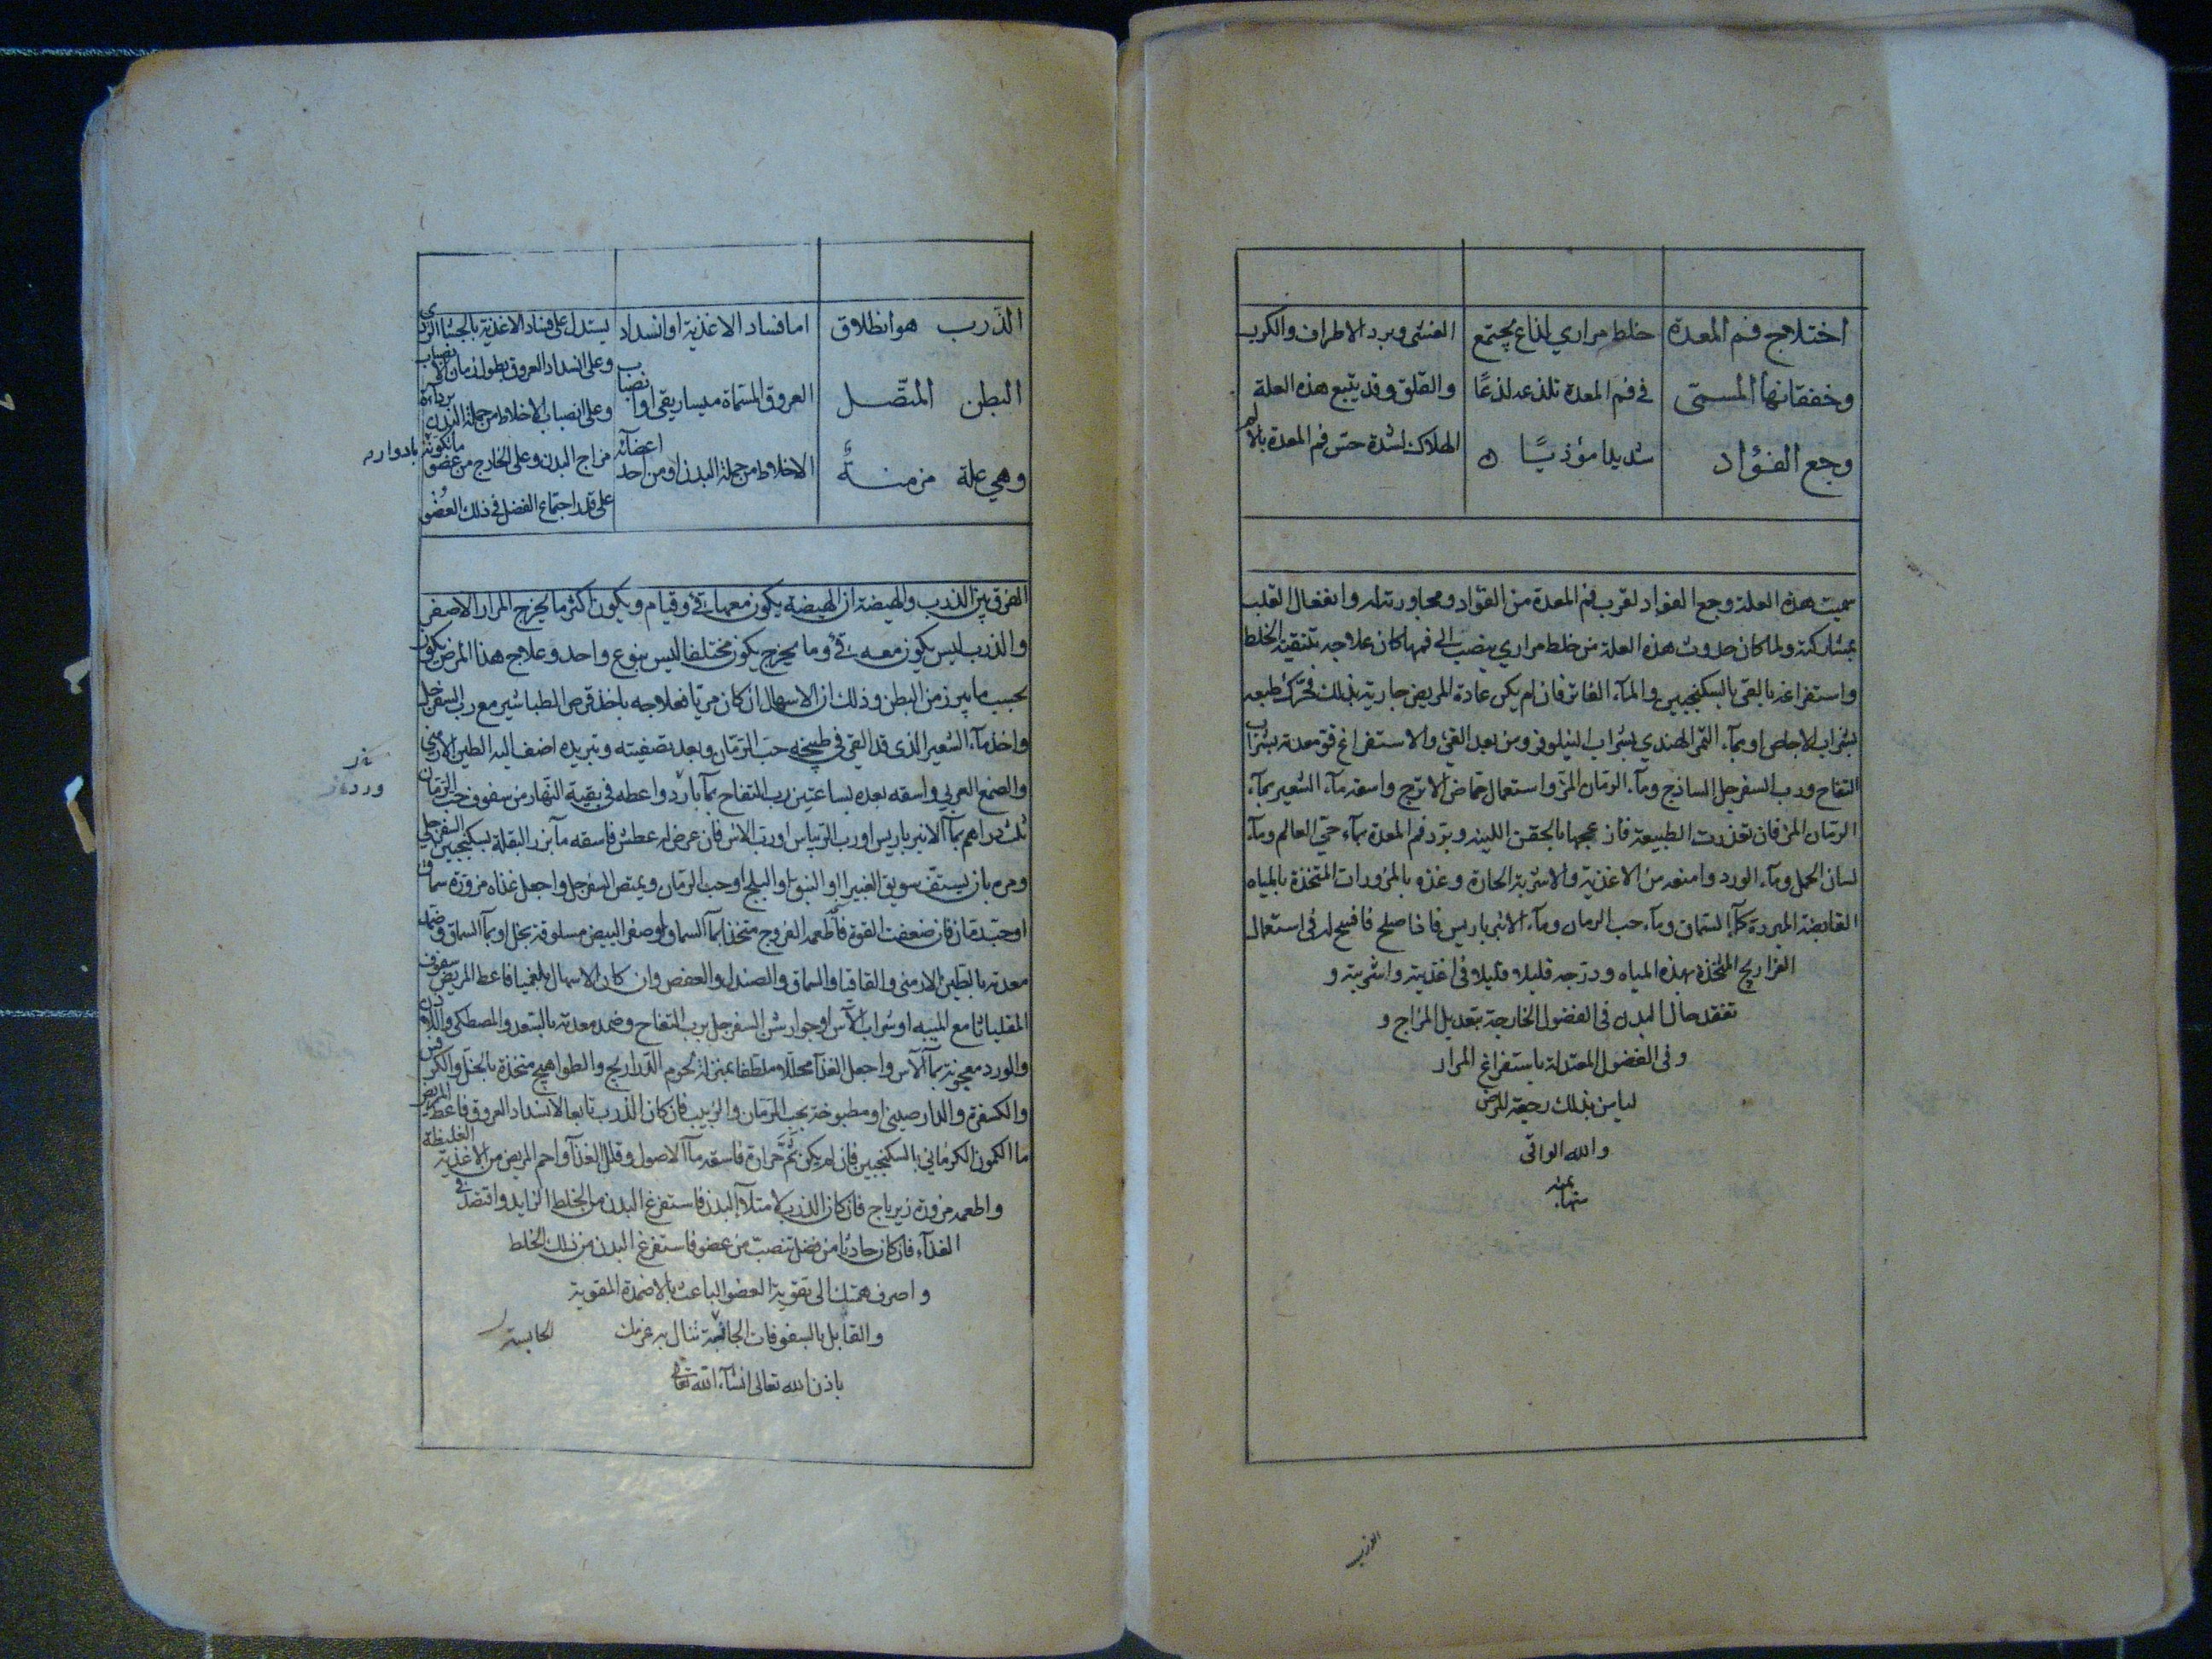 اختلاج فم المعدة
وخفقانها المسمى
وجع الفؤاد
خلط مراري لذاع يجتمع
في فم المعدة تلذعه لذعًا
شديدا مؤذيًا
الغشى وبرد الاطراف والكرب
والقلق وقد يتبع هذه العلة
الهلاك لشدة حس فم المعدة بالالم
سميت هذه العلة وجع الفواد لقرب فم المعدة من الفؤاد ومجاورته له وانفعال القلب
بمشاركته ولما كان حدوث هذه العلة من خلط مراري ينصب الى فمها كان علاجه بتنقية الخلط
واستفراغه بالقئ بالسكنجبين والمآء الفاتر فان لم يكن عادة المريض جارية بذلك فحرك طبعه
بشراب الاجاص او بمآء التمر الهندي بشراب النيلوفر ومن بعد القئ والاستفراغ قو معدته بشراب
التفاح ورب السفرجل الساذج ومآء الرمان المز واستعمال حماض الاترج واسقه مآء الشعير بمآء
الرمان المز فان تعذرت الطبيعة فازعجها بالحقن اللينه وبرد فم المعدة بمآء حى العالم ومآء
لسان الحمل ومآء الورد وامنعه من الاغذية والاشربة الحارة وغذه بالمزورات المتخذة بالمياه
القابضة المبردة كمآء السماق ومآء حب الرمان ومآء الانبرباريس فاذا صلح فافسح له في استعمال
الفراريج المتخذة بهذه المياه ودرجه قليلا قليلا في اغذيته واشربته و
تفقد حال البدن في الفضول الخارجة بتعديل المزاج و
وفي الفضول المعتدلة باستفراغ المرار
لياس بذلك رجعة المرض
والله الواقى
بمنه
الذرب
الذرب هو انطلاق
البطن المتصل
وهي علة مزمنة
اما فساد الاغذية او انسداد
العروق المسماة ميساريقى او انصباب
الاخلاط من جملة البدن او من احد اعضآئه
يستدل على فساد الاغذية بالجشا الردى
وعلى انسداد العروق بطول زمان الانصباب
وعلى انصباب الاخلاط من جملة البدن بردآءة
مزاج البدن وعلى الخارج من عضو ما بكونه
بادواره
على قدر اجتماع الفضل في ذلك العضو
الفرق بين الذرب والهيضة ان الهيضة يكون معها قئ وقيام ويكون اكثر ما يخرج المرار الاصفر
والذرب ليس يكون معه قئ وما يخرج يكون مختلفا ليس بنوع واحد وعلاج هذا المرض يكون
بحسب ما يبرز من البطن وذلك ان الاسهال ان كان مريا فعلاجه باخذ قرص الطباشير مع رب السفرجل
واخذ مآء الشعير الذي قد القي في طبيخه حب الرمان وبعد تصفيته وتبريده اضف اليه الطين الارمني
والصمغ العربي واسقه بعده بساعتين رب التفاح بمآ بارد واعطه في بقية النهار من سفوف حب الرمان
ثلث دراهم بمآ الانبرباريس او رب الريباس او رب الاس فان عرض له عطش فاسقه مآ بزر البقلة بسكنجبين السفرجلي
ومره بان يستف سويق الغبيرا او النبق او البلح او حب الرمان ويمتص السفرجل واجعل غذاه مزورة سماق
او حب رمان فان ضعفت القوة فاطعمه الفروج متخذا بمآ السماق او صفر البيض مسلوقة بخل او بمآ السماق وضمد
معدته بالطين الارمني والقاقيا والسماق والصندل والعفص وان كان الاسهال بلغميا فاعط المريض سفوف
المقلياثا مع الميبه او شراب الآس او جوارشن السفرجل برب التفاح وضمد معدته بالسعد والمصطكى واللادن
والورد معجونة بمآ الآس واجعل الغذآ محللا وملطفا بمنزلة لحوم الدراريج والطواهيج متخذة بالخل والكرفس
والكسفرة والدار صيني او مطبوخة بحب الرمان والزبيب فان كان الذرب تابعا لانسداد العروق فاعط المريض
ما الكمون الكرماني بالسكنجبين فان لم يكن ثم حرارة فاسقه مآ الاصول وقلل الغذآ واحم المريض من الاغذية الغليظة
واطعمه مزورة زيرباج فان كان الذرب لامتلآء البدن فاستفرغ البدن من الخلط الزايد واقتصد في
الغذآء فان كان حادثا من فضل تنصب من عضو فاستفرغ البدن من ذلك الخلط
واصرف همتك الى تقوية العضو الباعث بالاضمدة المقوية
والقابل بالسفوفات تنال به غرضك
الحابسة
باذن الله تعالى انشآء الله تعالى